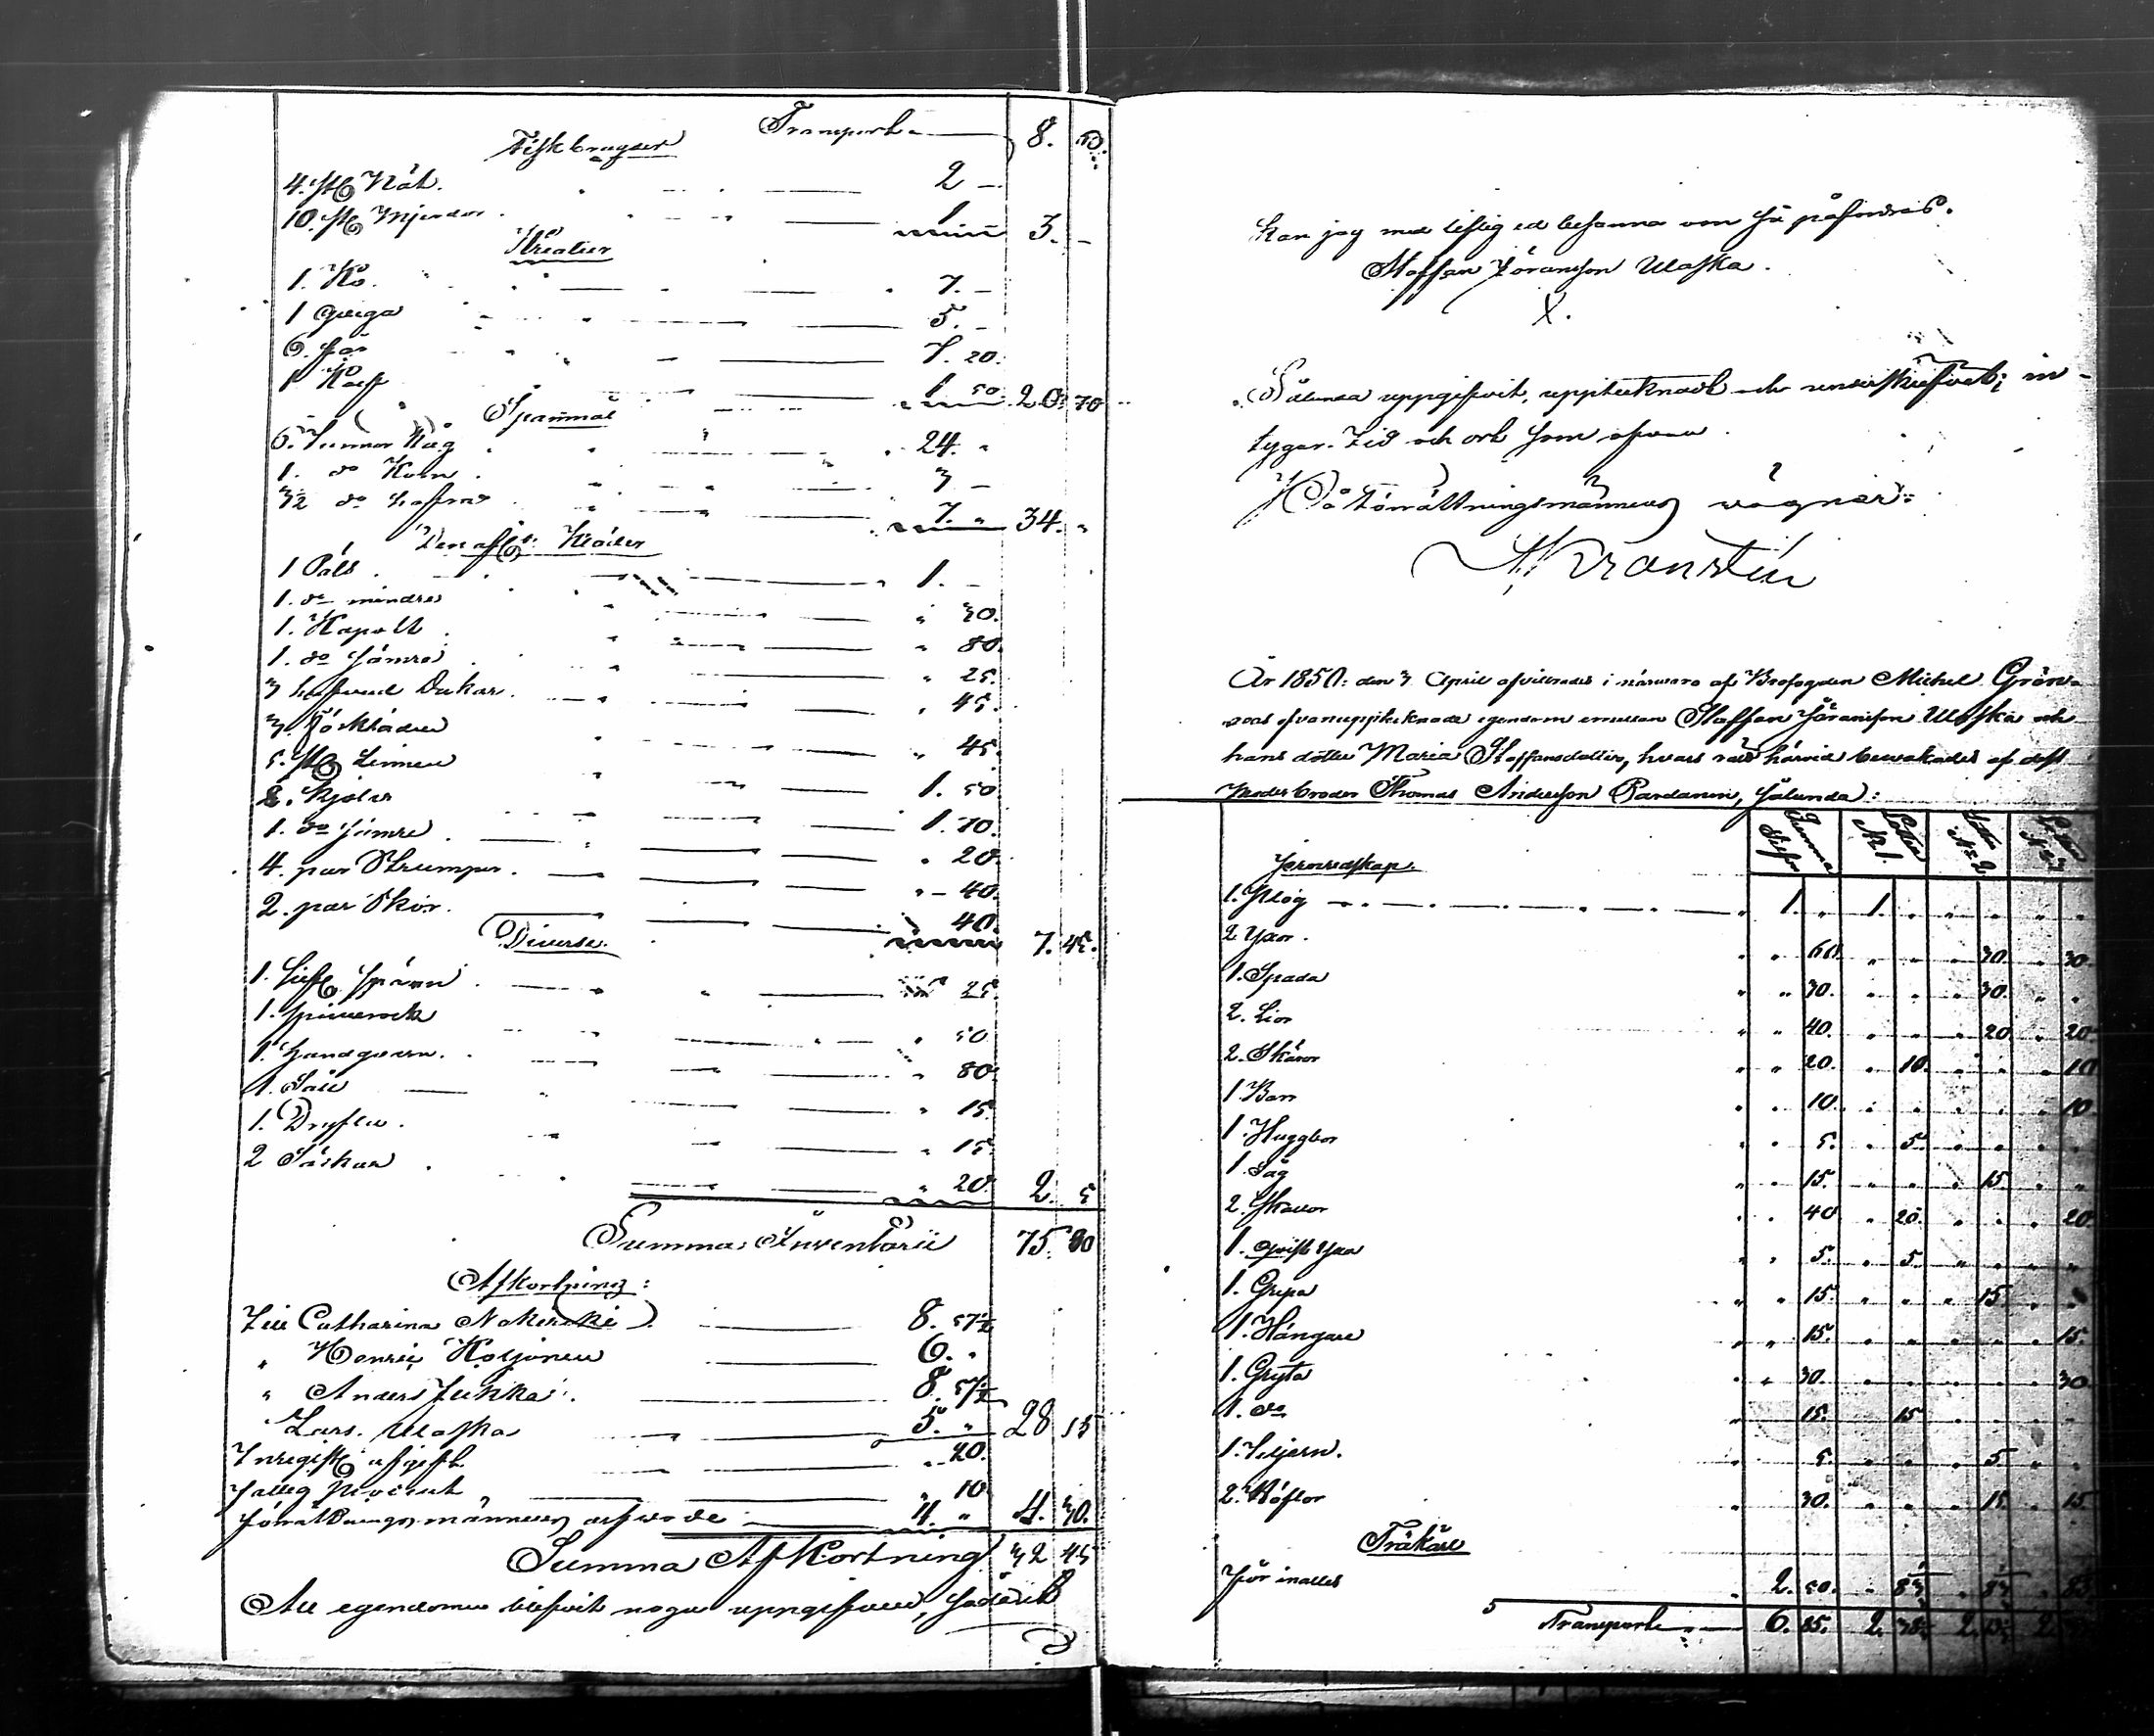 Transport 8.
Fiskbragder
4. st. Nät. 2 –
10. st. Mjerdor. 1 – 3. –
Kreatur
1. Ko. 7. –
1 Qviga 5. –
6. får 7. 20.
1 Kalf 1 50. 20. 70
Spanmål
6. Tunnor Råg 24.
1. do Korn 3 –
3½ do hafra 7. „ 34. „
Den aflidnas Kläder
1 Päls 1. –
1. do mindre „ 30.
1. Kapott „ 80.
1. do sämre „ 25.
3 hufvud Dukar „ 45.
3. förkläden „ 45.
5. st. Linnen 1. 50
2. Kjolar 1. 70.
1. do sämre „ 20.
4. par Strumpor. „ 40.
2. par Skor. 40. 7. 45.
Diverse.
1. spånn 25.
1. spinnrock „ 50
1. handqvarn. „ 80.
1. Såll „ 15.
1. Dryftu. „ 15.
2 Säckar „ 20. 2. 5
Summa Inventarii 75. 80
Afkortning:
Till Catharina 8. 57½
„ Henric Koljonen 6. „
„ Anders Jukka 8. 57½
Lars. Ulaska 5. „ 28 15
Inregist. afgift „ 20.
fattig procent „ 10
förrättningsmännens arfvode 4. „ 4. 30.
Summa Afkortning 32 45
All egendomen blifvit noga uppgifven, sådant
kan jag med liflig ed besanna om så påfordras.
Staffan Jöransson Ulaska.
X.
Sålunda uppgifvit, upptecknadt och underskrifvet; in-
tygar. Tid och ort som ofvan.
På Förrättningsmännens vägnar:
År 1850. den 3 April afvittrades i närvaro af Brofogden Michel Grön-
roos ofvanupptecknade egendom emellan Staffan Jöransson Ulaska och
hans dotter Maria Staffansdotter, hvars rätt härvid bevakades af dess
Moderbroder Thomas Andersson Pardanen, sålunda:
Summa Silfer Lotten N. 1. Lotten N: 2 Lotten N: 3
Jernredskap.
1. Plog 1. „ 1. „ „ „ „ „
2 Yxor. „ 60. „ „ „ 30. „ 30.
1. Spada „ 30. „ „ „ 30. „ „
2. Lior „ 40. „ „ „ 20 „ 20.
2. Skäror „ 20. „ 10. „ „ „ 10
1 Barr „ 10. „ „ „ „ „ 10
1. Huggbor „ 5. „ 5. „ „ „ „
1. Såg „ 15. „ „ „ 15. „ „
2. Skavor „ 40 „ 20. „ „ „ 20.
1. qvist yxa „ 5. „ 5. „ „ „ „
1. Gripa „ 15. „ „ „ 15. „ „
1. Hängare „ 15. „ „ „ „ „ 15.
1. Gryta „ 30. „ „ „ „ „ 30.
1. do 15. 15 „ „ „ „
1. 5. „ „ „ 5. „ „
2. 30. „ „ „ 15. „ 15
Träkäre
för inalles 2. 50. „ 83⅓ „ 83⅓ „ 83
Transport 6. 85. 2. 38⅓ 2. 2.